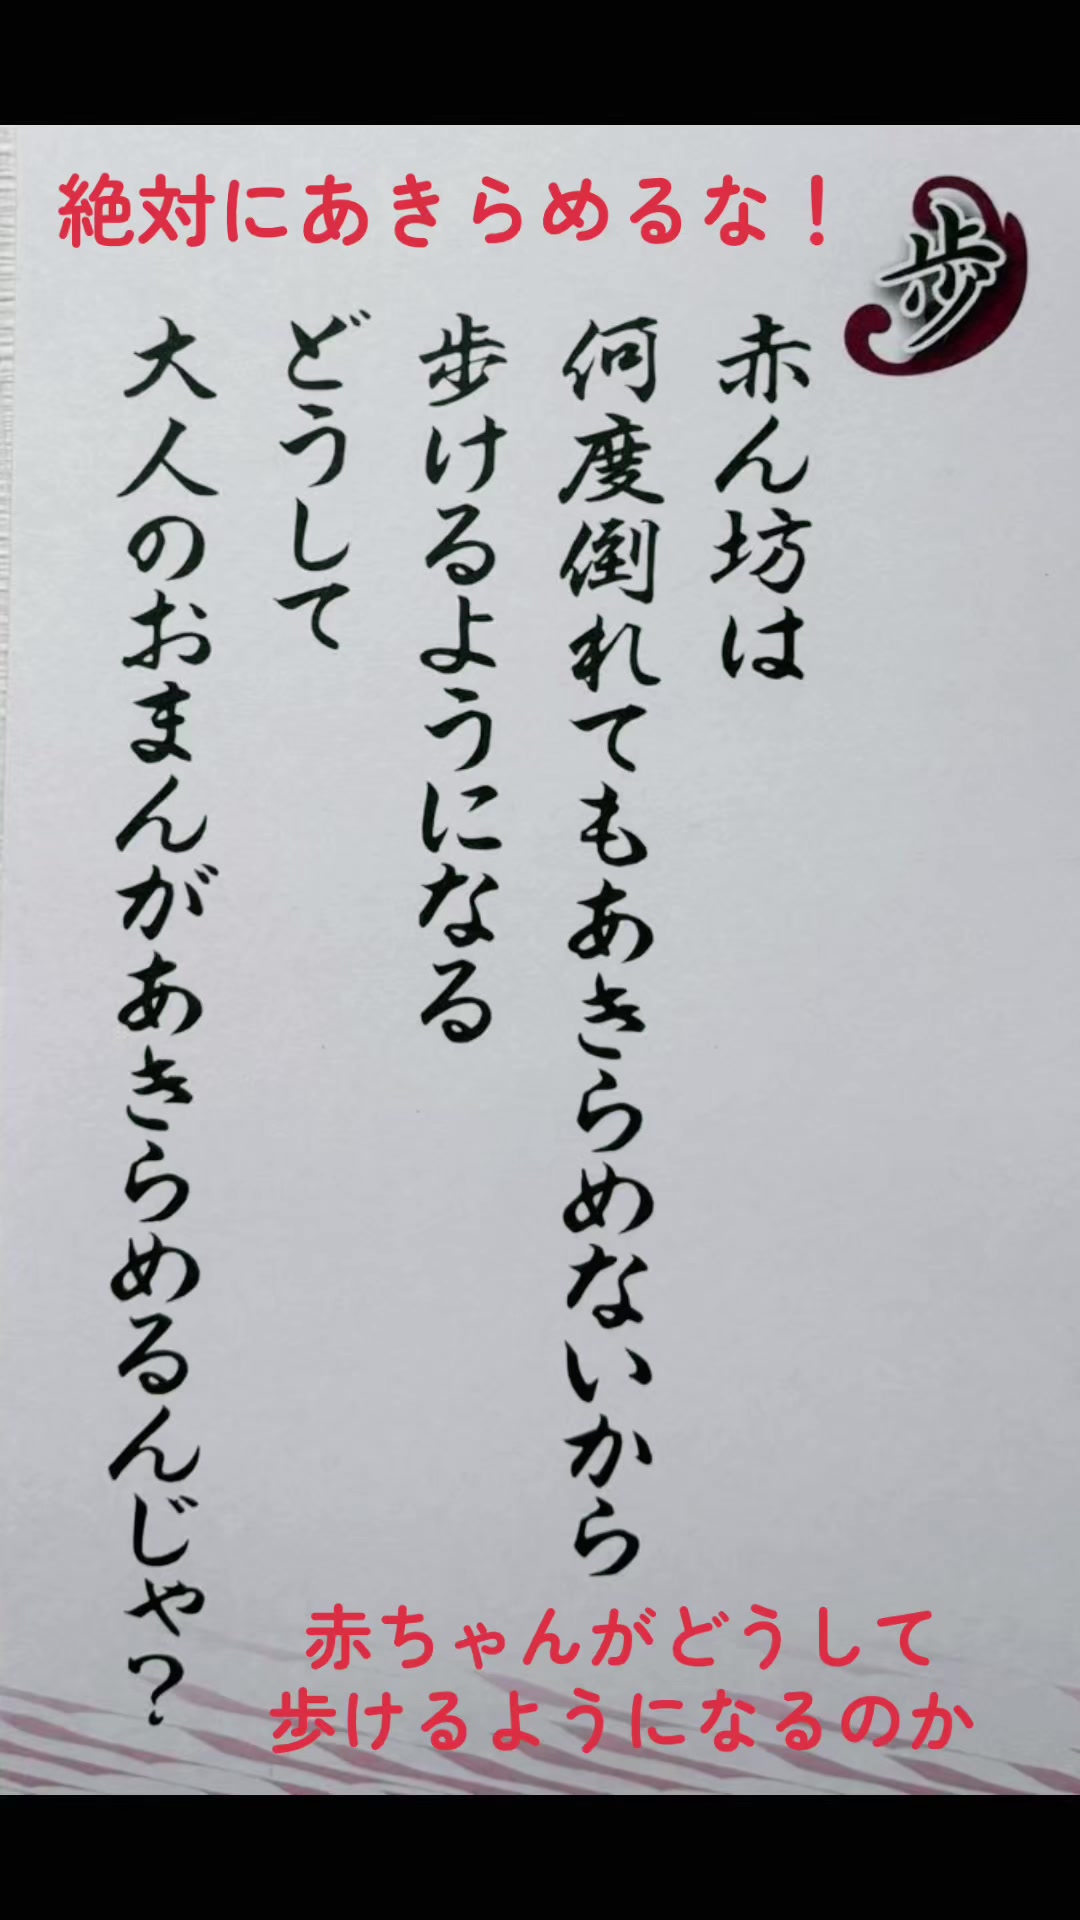 絶対にあきらめるな！
歩
赤ん坊は
何度倒れてもあきらめないから
歩けるようになる
どうして
大人のおまんがあきらめるんじゃ？
赤ちゃんがどうして
歩けるようになるのか